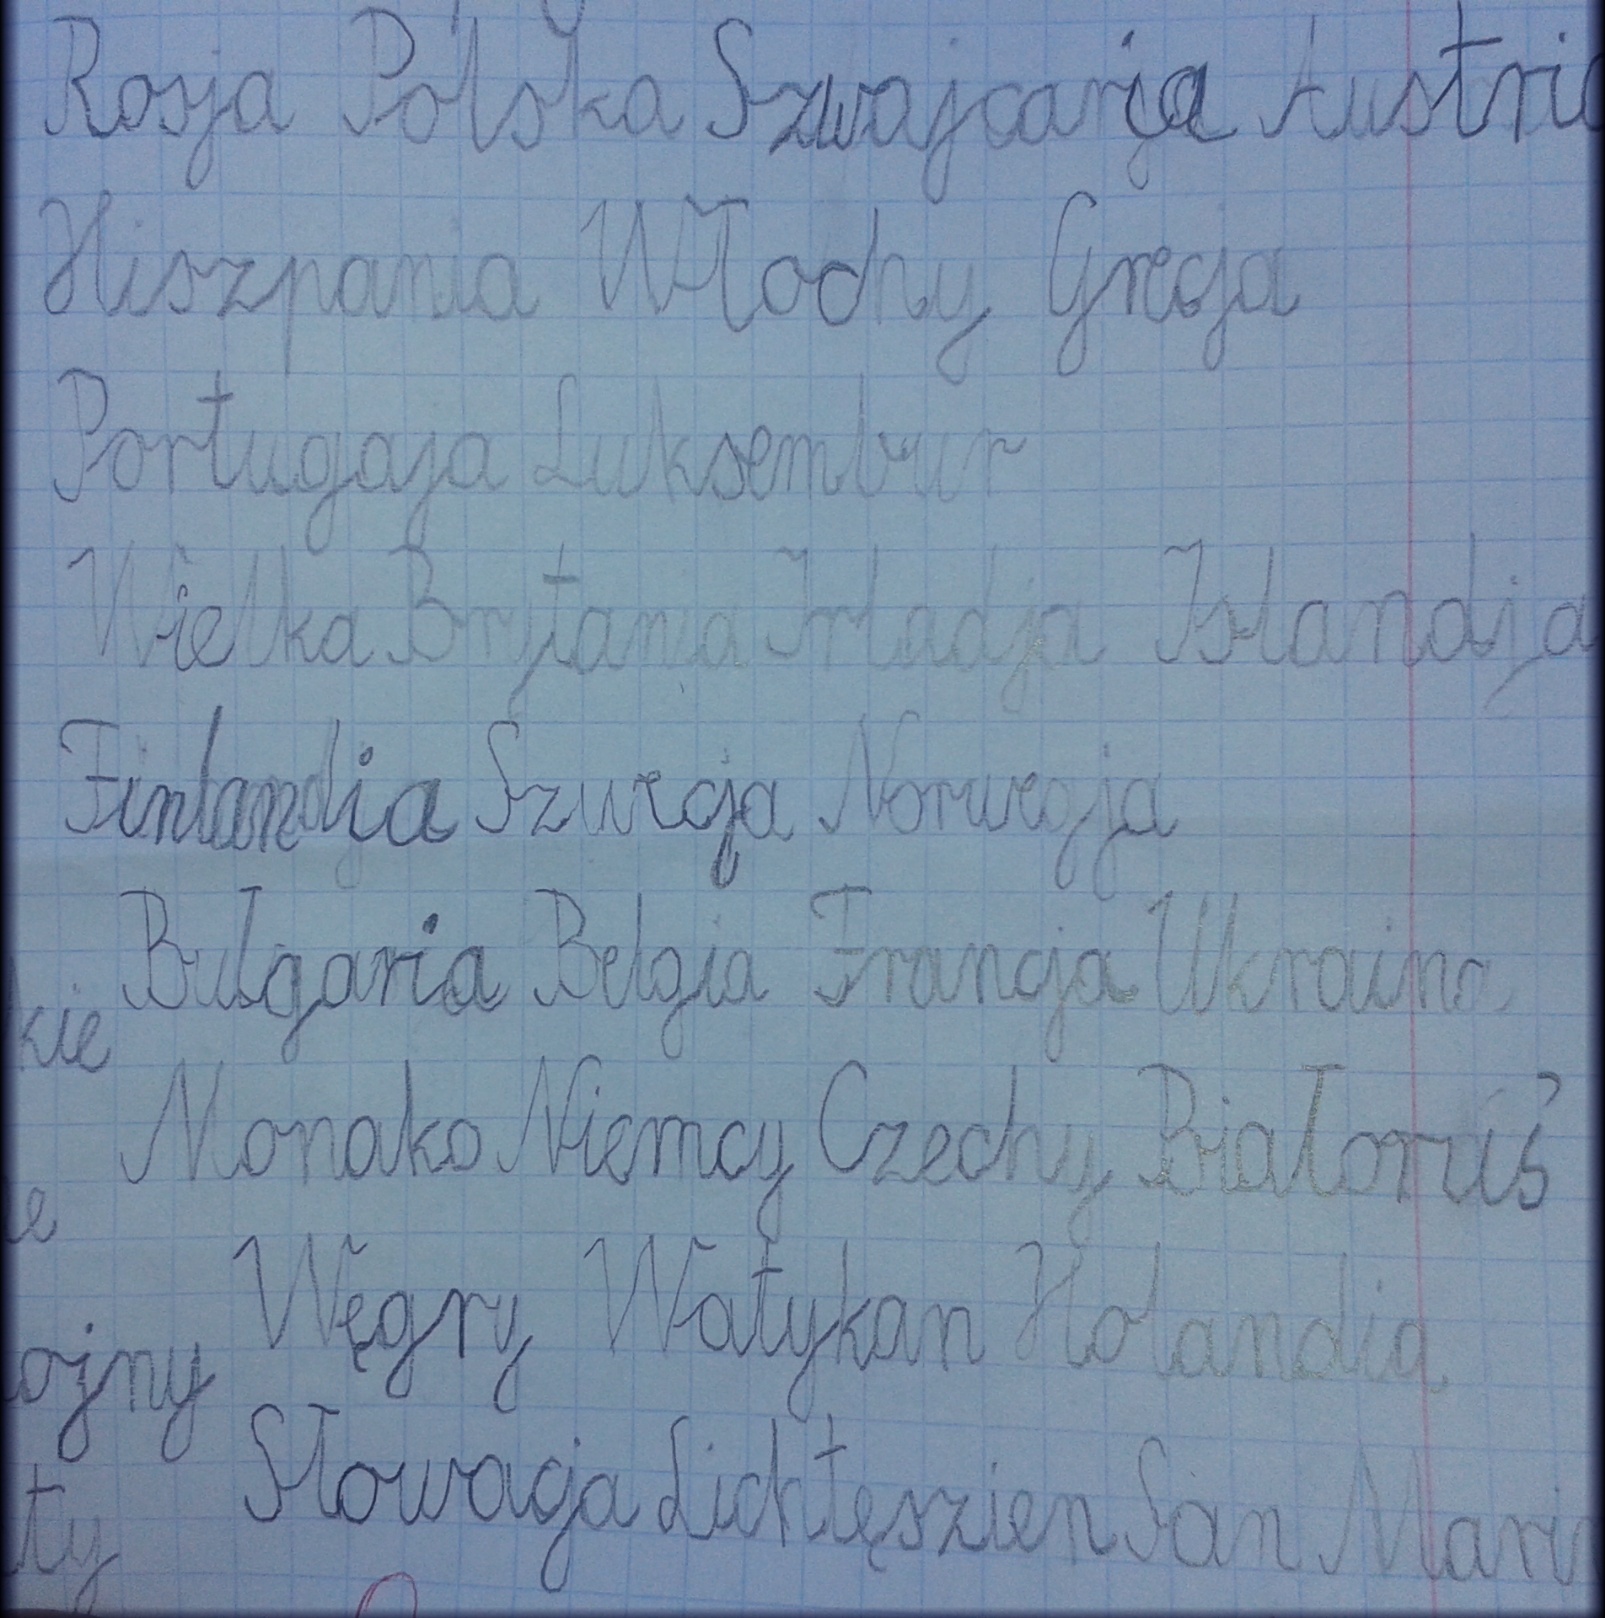 Rosja Polska Szwajcaria Austria
Hiszpania Włochy Grecja
Portugaja Luksembur
Wielka Brytania Irladja Islandja
Finlandia Szwecja Norwegja
Bułgaria Belgia Francja Ukraina
kie
Monako Niemcy Czechy Białoruś
e
Węgry Watykan Holandia
ojny
Słowacja Lichtęszien San Marin
ty